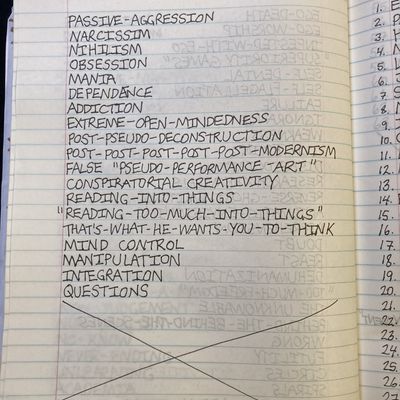 PASSIVE-AGGRESSION
NARCISSIM
NIHILISM
OBSESSION
MANIA
DEPENDANCE
ADDICTION
EXTREME-OPEN-MINDEDNESS
POST-PSEUDO-DECONSTRUCTION
POST-POST-POST-POST-POST-MODERNISM
FALSE "PSEUDO-PERFORMANCE-ART"
CONSPIRATORIAL CREATIVITY
READING-INTO-THINGS
"READING-TOO-MUCH-INTO-THINGS"
THAT'S-WHAT-HE-WANTS-YOU-TO-THINK
MIND CONTROL
MANIPULATION
INTEGRATION
QUESTIONS
1.
2.
3.
4.
5.
6.
7.
8.
9.
10.
11.
12.
13.
14.
15.
16.
17.
18.
19.
20.
21.
22.
23.
24.
25.
26.
27.